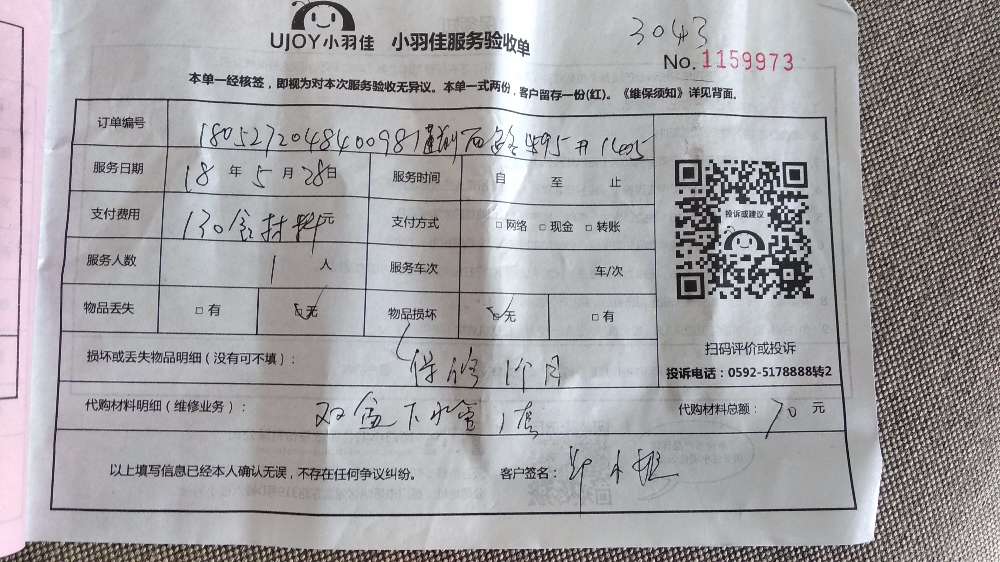 UJOY小羽佳 小羽佳服务验收单
3043
No. 1159973
本单一经核签，即视为对本次服务验收无异议。本单一式两份，客户留存一份(红)。《维保须知》详见背面。
订单编号 180527204840098
服务日期 18 年 5 月 28 日 服务时间 自 至 止
支付费用 130含材料元 支付方式 □ 网络 □ 现金 □ 转账
服务人数 1 人 服务车次 车/次
物品丢失 □ 有 □ 无 物品损坏 □ 无 □ 有
投诉或建议
扫码评价或投诉
投诉电话：0592-5178888转2
损坏或丢失物品明细（没有可不填）： 保修1个月
代购材料明细（维修业务）： 双盆下水管1套 代购材料总额： 70 元
以上填写信息已经本人确认无误，不存在任何争议纠纷。 客户签名：